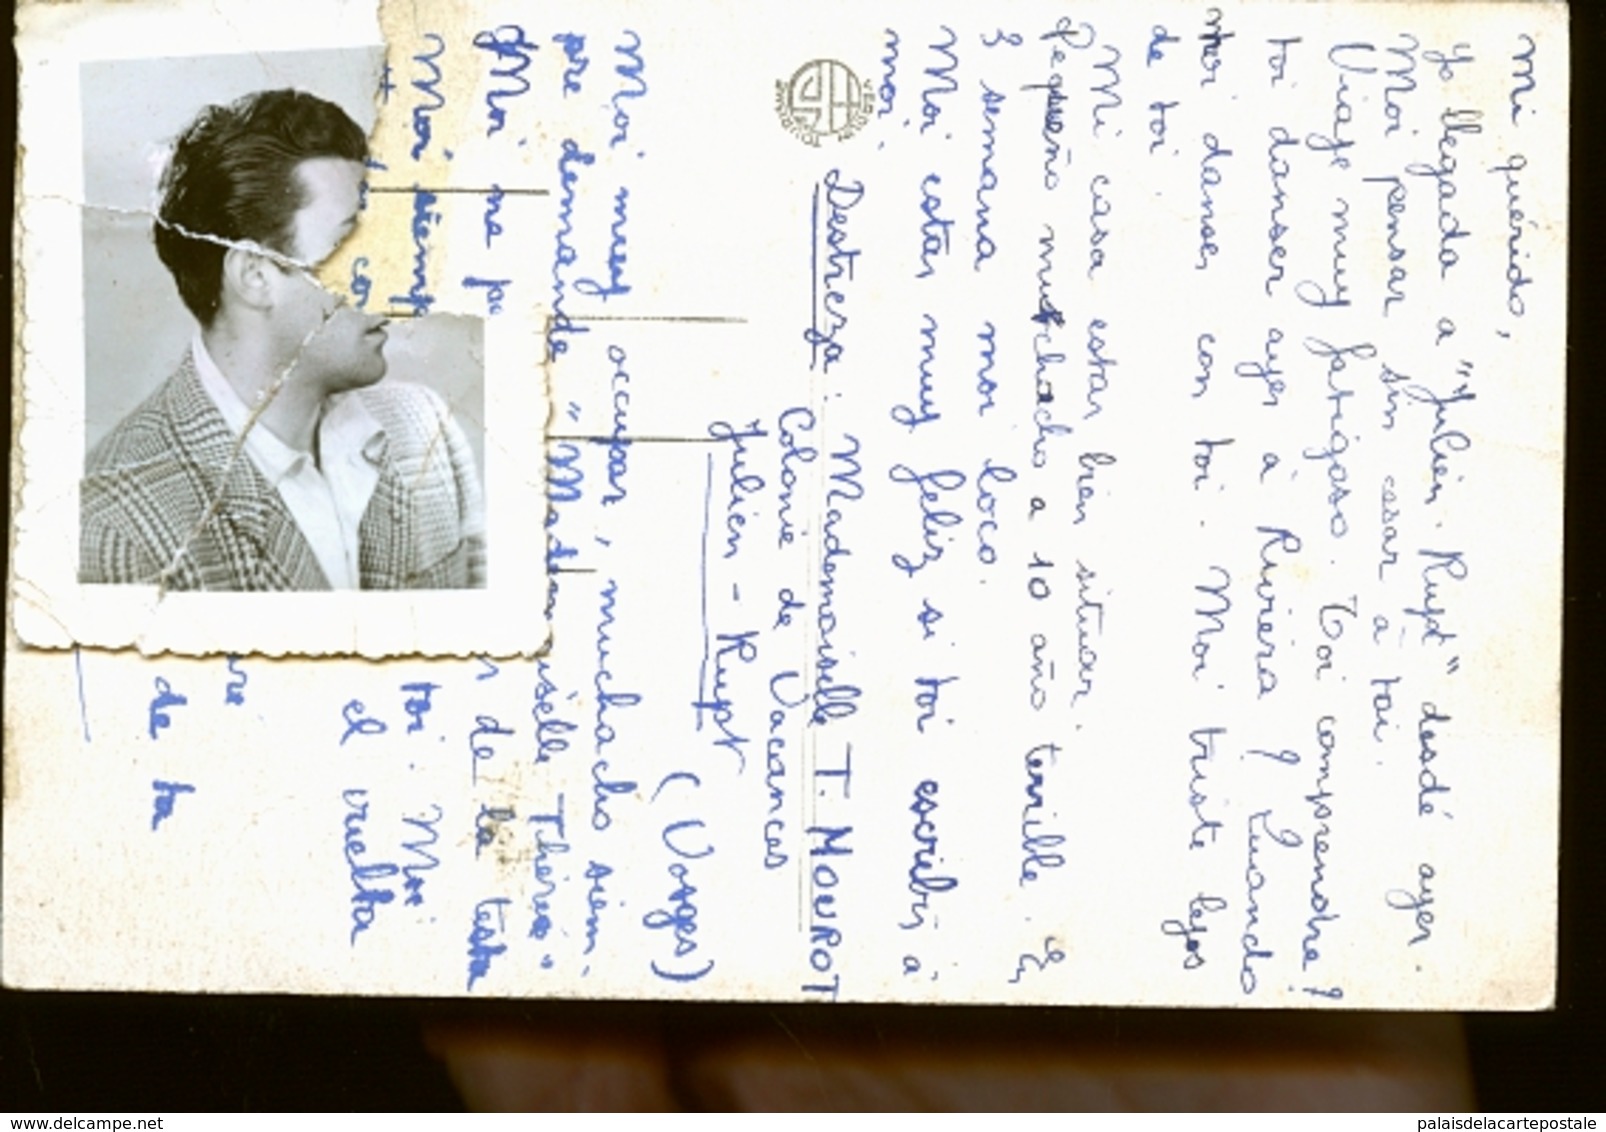 Mi quérido,
Yo llegada a "Julien. Rupt" desdé ayer.
Moi pensar sin cesar à toi.
Viaje muy fatigoso. Toi comprendre?
toi danser ayer à Riviera? Quando
moi danser con toi. Moi triste lejos
de toi.
Mi casa estar bien situar.
Pequeño muchacho a 10 año terrible. En
3 semana moi loco.
Moi estar muy feliz si toi escribir à
moi.
Destreza: Mademoiselle T. MOUROT
Colonie de Vacances
Julien - Rupt
(Vosges)
Moi muy occupar, muchacho siem-
pre demande "Mademoiselle Thérèse"
Moi ne pe
de la testa
Moi siemp
toi. Moi
el vuelta
re
de ta
www.delcampe.net
palaisdelacartepostale